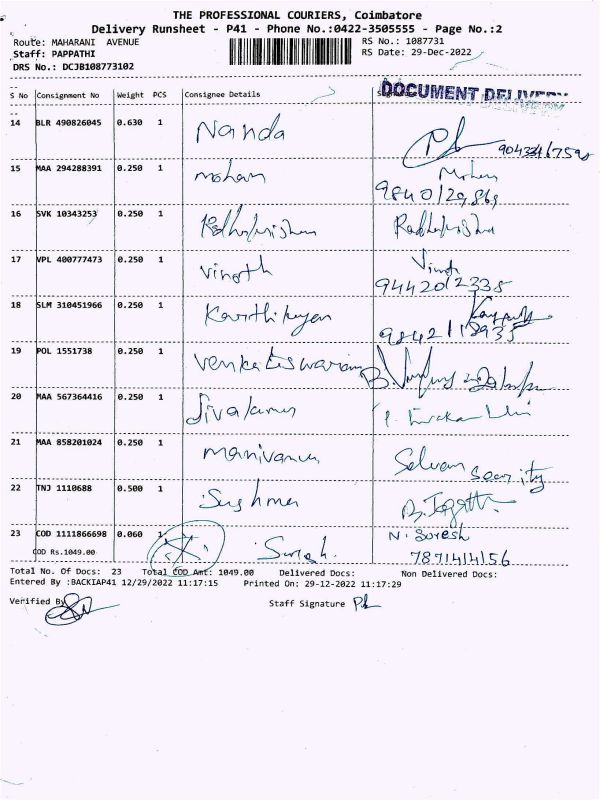 THE PROFESSIONAL COURIERS, Coimbatore
Delivery Runsheet - P41 - Phone No.:0422-3505555 - Page No.:2
Route: MAHARANI AVENUE
RS No.: 1087731
Staff: PAPPATHI
RS Date: 29-Dec-2022
DRS No.: DCJB108773102
S No Consignment No Weight PCS Consignee Details
DOCUMENT DELIVERY
14 BLR 490826045 0.630 1 Nanda
15 MAA 294288391 0.250 1 mohan Mohan
9840129869
16 SVK 10343253 0.250 1 Radhakrishnan Radhakrishna
17 VPL 400777473 0.250 1 Vinoth Vinoth
9442012335
18 SLM 310451966 0.250 1 Karthikeyan
9842118935
19 POL 1551738 0.250 1 Venkateswaran
20 MAA 567364416 0.250 1 Sivakumar
21 MAA 858201024 0.250 1 manivannan Selvam Security
22 TNJ 1110688 0.500 1 Sushma
23 COD 1111866698 0.060 1 Suresh. N. Suresh
COD Rs.1049.00 7871414156
Total No. Of Docs: 23 Total COD Amt: 1049.00 Delivered Docs: Non Delivered Docs:
Entered By :BACKIAP41 12/29/2022 11:17:15 Printed On: 29-12-2022 11:17:29
Verified By
Staff Signature